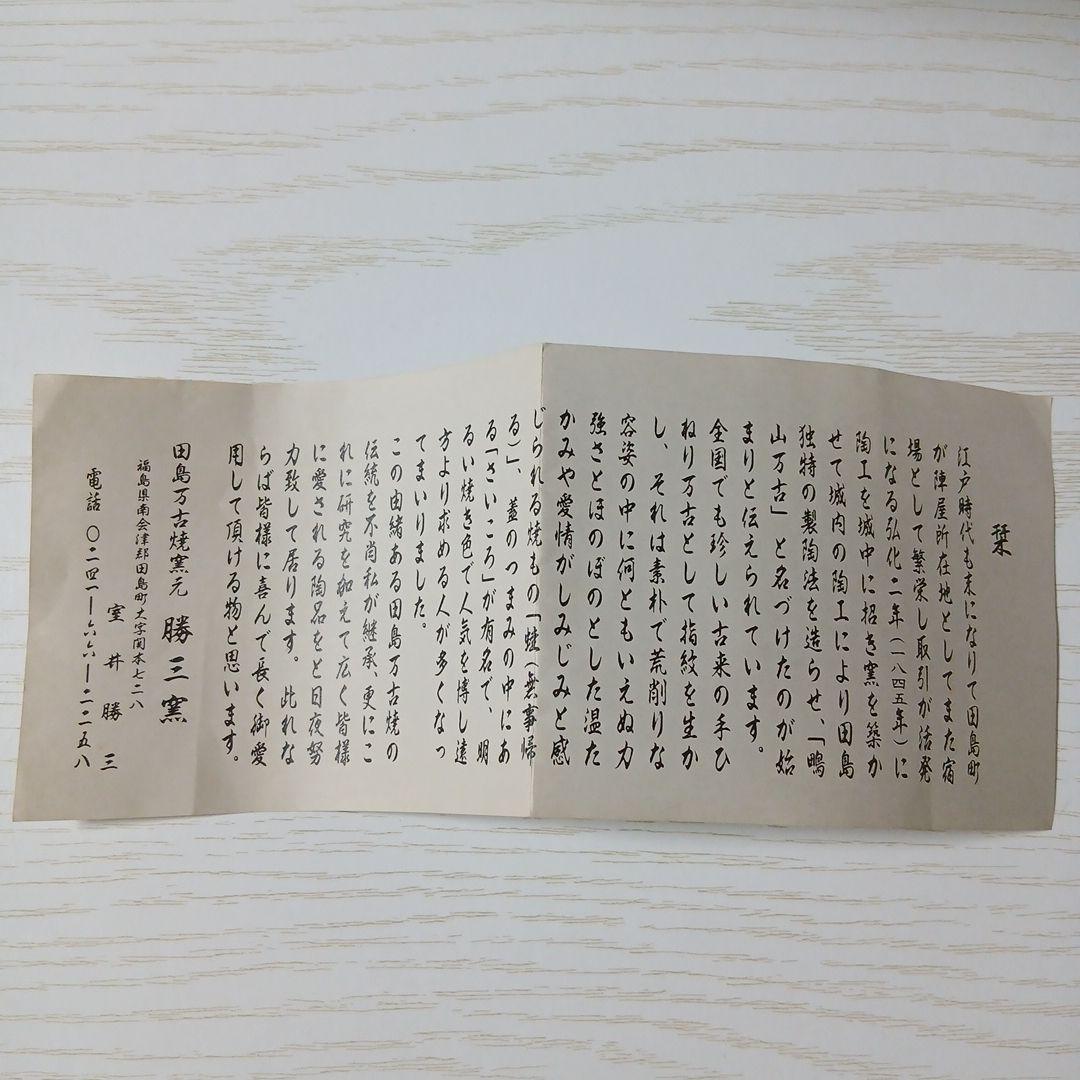 栞
江戸時代も末になりて田島町
が陣屋所在地としてまた宿
場として繁栄し取引が活発
になる弘化二年(一八四五年)に
陶工を城中に招き窯を築か
せて城内の陶工により田島
独特の製陶法を造らせ、「鴫
山万古」と名づけたのが始
まりと伝えられています。
全国でも珍しい古来の手ひ
ねり万古として指紋を生か
し、それは素朴で荒削りな
容姿の中に何ともいえぬ力
強さとほのぼのとした温た
かみや愛情がしみじみと感
じられる焼もの「蛙(無事帰
る)」、蓋のつまみの中にあ
る「さいころ」が有名で、明
るい焼き色で人気を博し遠
方より求める人が多くなっ
てまいりました。
この由緒ある田島万古焼の
伝統を不肖私が継承、更にこ
れに研究を加えて広く皆様
に愛される陶品をと日夜努
力致して居ります。此れな
らば皆様に喜んで長く御愛
用して頂ける物と思います。
田島万古焼窯元 勝三窯
福島県南会津郡田島町大字関本七二八
室井勝三
電話 〇二四一-六六-二二五八